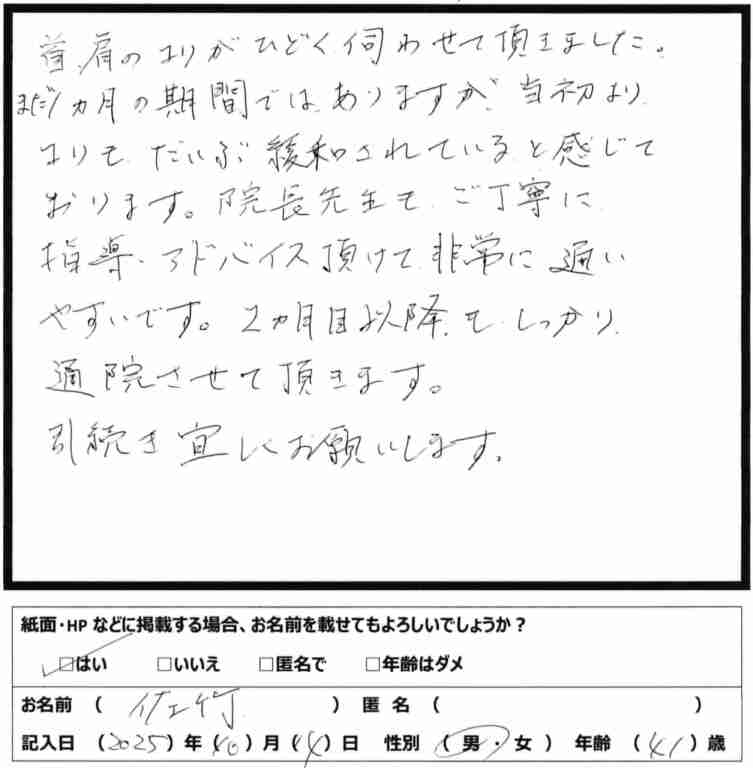 首、肩のコリがひどく伺わせて頂きました。
まだ1カ月の期間ではありますが、当初より
コリも、だいぶ緩和されていると感じて
おります。院長先生も、ご丁寧に
指導・アドバイス頂けて、非常に通い
やすいです。2カ月目以降も、しっかり
通院させて頂きます。
引続き宜しくお願いします。
紙面・HP などに掲載する場合、お名前を載せてもよろしいでしょうか？
□はい □いいえ □匿名で □年齢はダメ
お名前 （ 佐竹 ） 匿 名 （ ）
記入日 （2025）年（10）月（14）日 性別 （ 男 ・ 女 ） 年齢 （ 41 ）歳